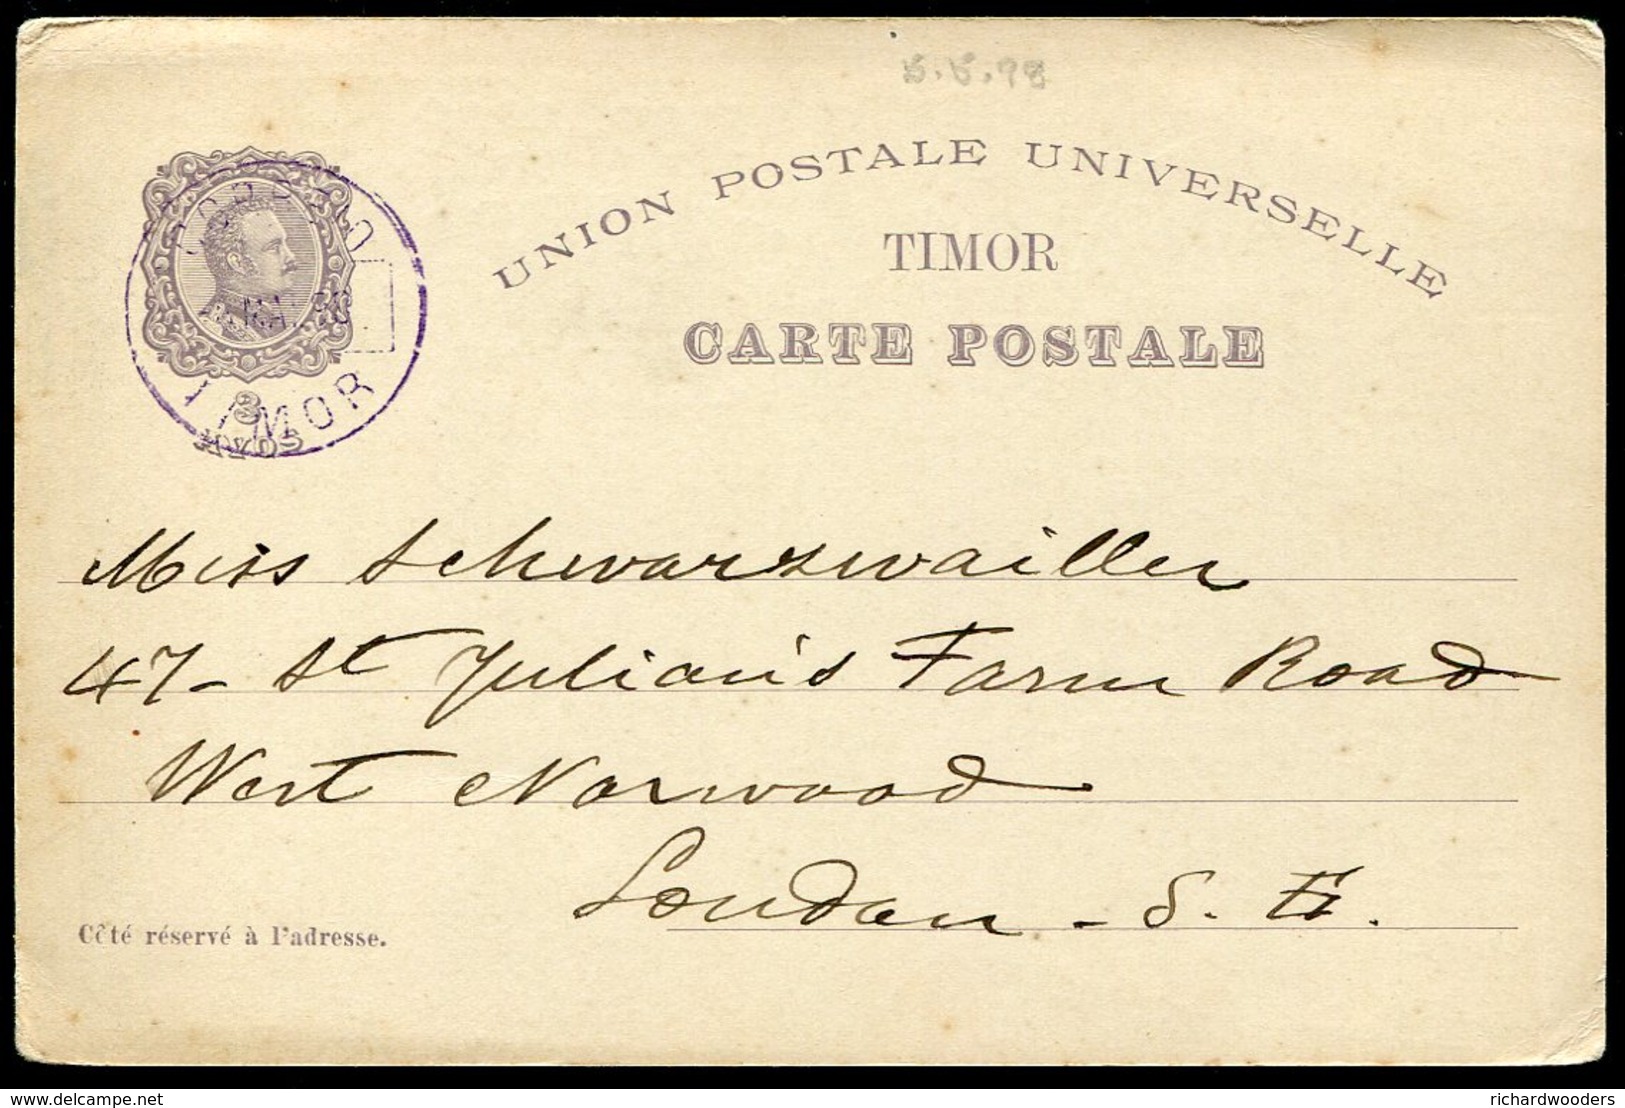 5.5.98
UNION POSTALE UNIVERSELLE
TIMOR
CARTE POSTALE
TIMOR
3
AVOS
Miss Schwarzwailler
47- St Julian's Farm Road
West Norwood
London - S. E.
Côté réservé à l'adresse.
www.delcampe.net
richardwooders